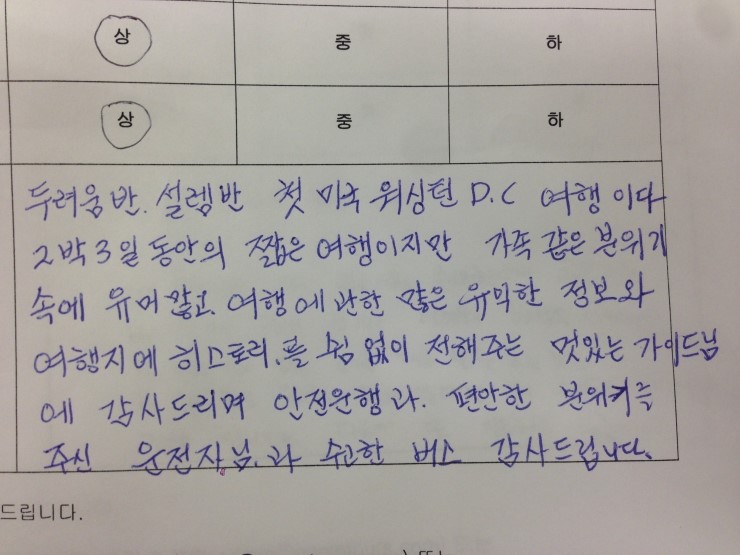 상 중 하
상 중 하
두려움 반. 설렘반 첫 미국 워싱턴 D.C 여행 이다
2박 3일 동안의 짧은 여행이지만 가족 같은 분위기
속에 유머 많고. 여행에 관한 많은 유익한 정보와
여행지에 히스토리.를 쉼 없이 전해주는 멋있는 가이드님
에 감사드리며 안전운행과. 편안한 분위기를
주신 운전자님.과 수고한 버스 감사드립니다.
드립니다.